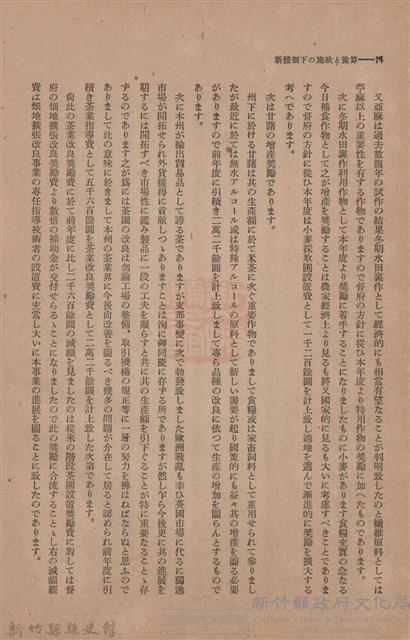 新體制下の施政と豫算――14
又亞麻は過去數箇年の試作の結果冬期水田裏作として經濟的にも相當有望なることが判明致したのと纖維原料としては
苧麻以上の重要性を有する作物でありますので督府の方針に從ひ本年度より特用作物の奬勵に加へたものであります。
次に冬期水田裏作利用作物として本年度より奬勵に着手することになりましたものに小麥があります食糧充實の急なる
今日補食作物として之が增産を奬勵することは農家經濟上より見るも將又國家的に見るも大いに考慮すべきことでありま
すので督府の方針に從ひ本年度は小麥採取圃設置費として一千二百餘圓を計上致し適地を選んで漸進的に奬勵を擴大する
考へであります。
次は甘藷の增産奬勵であります。
州下に於ける甘藷は其の生産額に於て米茶に次ぐ重要作物でありまして食糧或は家畜飼料として重用せられて參りまし
たが最近に於ては無水アルコール或は特殊アルコールの原料として新しい需要が起り國策的にも益々其の增産を圖る必要
がありますので前年度に引續き二萬二千餘圓を計上致しまして專ら品種の改良に依つて生産の增加を圖らんとするもので
あります。
次に本州が輸出貿易品として誇る茶でありますが支那事變に次で勃發致しました歐洲戰亂も幸ひ英國市場に代るに獨逸
市場が開拓せられ外貨獲得に貢獻しつゝありますことは洵に御同慶に存する所でありますが然し乍ら今後更に其の進展を
期するには開拓すべき市場性に鑑み製品に一段の工夫を凝らすと共に其の生產額を引下ぐることが特に重要なることゝ存
ずるのであります之が爲には茶園の改良は勿論工場の整備、取引機構の規正等に一層の努力を拂はねばならぬと思ふので
ありまして此の意味に於きまして本州の茶業界に今後尙改善を圖るべき幾多の問題が介在して居ると認められ前年度に引
續き茶業指導費として五千六百餘圓を茶業改良奬勵費として二萬二千餘圓を計上致した次第であります。
尙此の茶業改良奬勵費に於て前年度に比し二千六百餘圓の減額を見ましたのは從來の階段茶園設置奬勵費に對しては督
府の畑地擴張改良事業奬勵費より數倍の補助金が交付せらるゝことになりましたので此の奬勵に合流することゝし右の減額經
費は畑地擴張改良事業の專任指導技術者の設置費に充當し大いに本事業の進展を圖ることに致したのであります。
新竹縣政府文化局
新竹縣縣史館